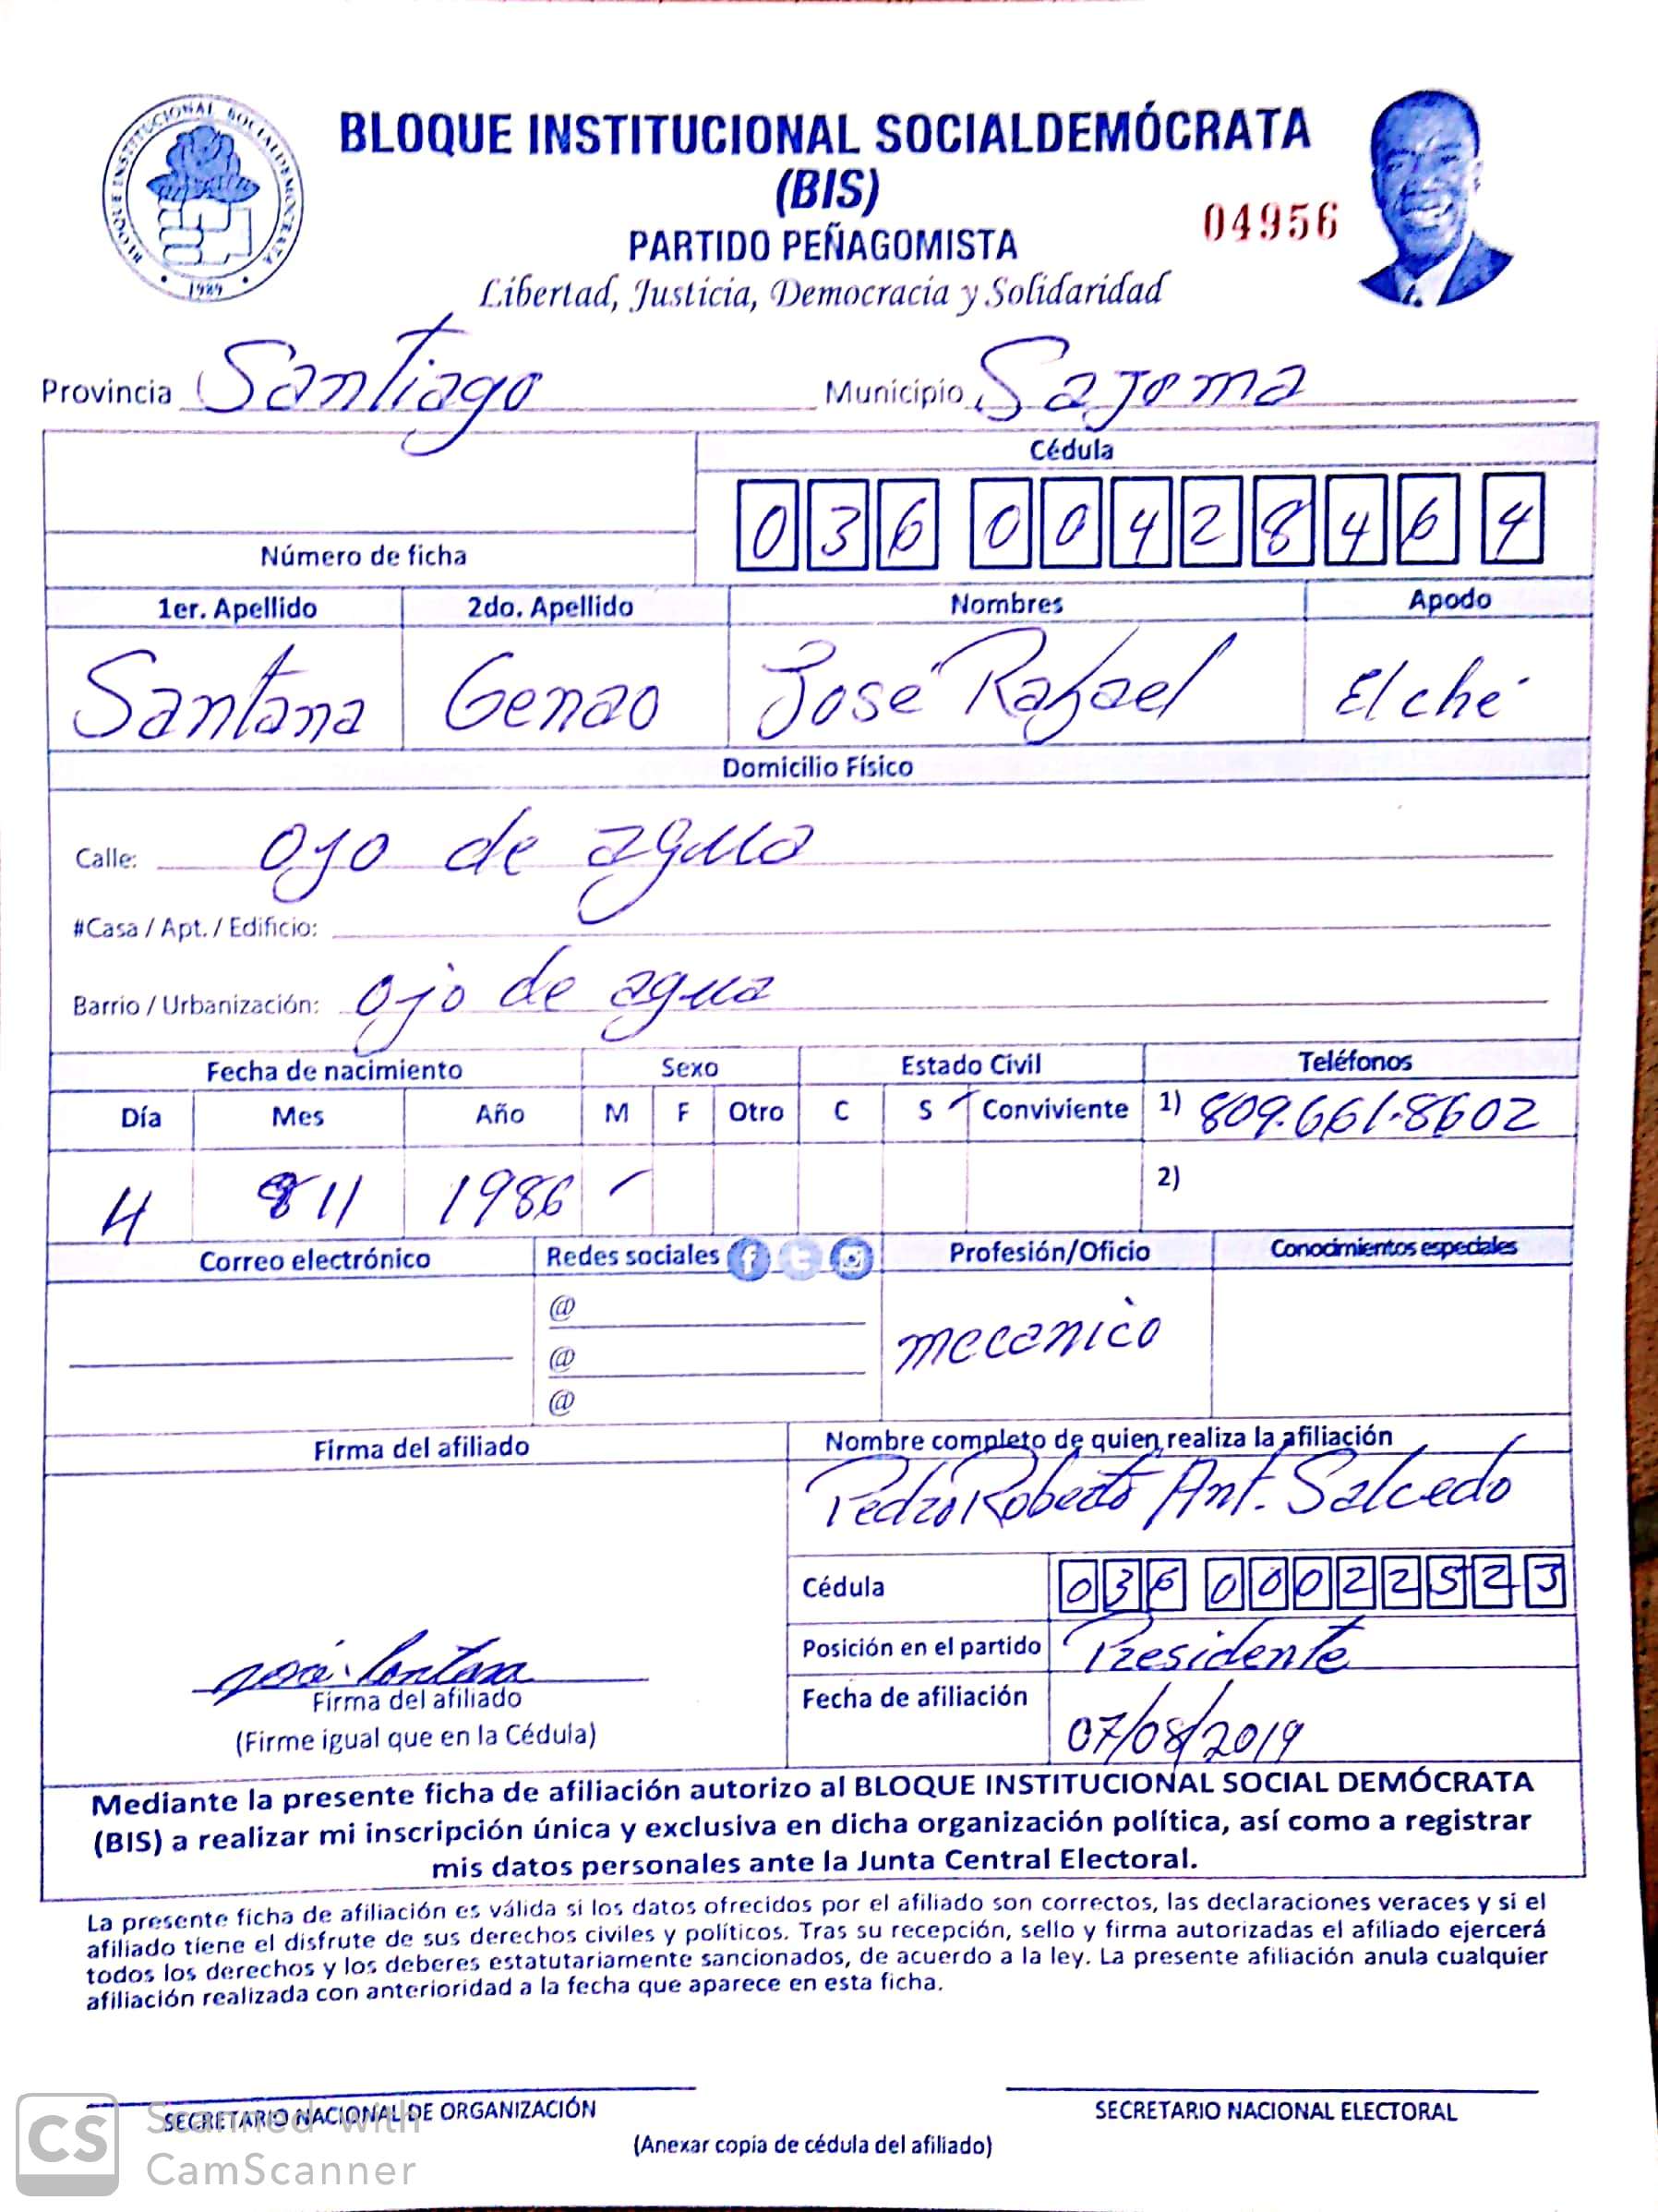 BLOQUE INSTITUCIONAL SOCIALDEMÓCRATA
BLOQUE INSTITUCIONAL SOCIALDEMOCRATA
1989
(BIS)
04956
PARTIDO PEÑAGOMISTA
Libertad, Justicia, Democracia y Solidaridad
Provincia Santiago Municipio Sajoma
Cédula
036 0042846 4
Número de ficha
1er. Apellido 2do. Apellido Nombres Apodo
Santana Genao José Rafael El ché
Domicilio Físico
Calle: ojo de agua
#Casa / Apt. / Edificio:
Barrio / Urbanización: ojo de agua
Fecha de nacimiento Sexo Estado Civil Teléfonos
Día Mes Año M F Otro C S Conviviente 1) 809-661-8602
4 11 1986 2)
Correo electrónico Redes sociales Profesión/Oficio Conocimientos especiales
@
@
@
mecanico
Firma del afiliado Nombre completo de quien realiza la afiliación
Pedro Roberto Ant. Salcedo
Cédula 036 0002252 3
José Santana
Posición en el partido Presidente
Firma del afiliado
Fecha de afiliación 07/08/2019
(Firme igual que en la Cédula)
Mediante la presente ficha de afiliación autorizo al BLOQUE INSTITUCIONAL SOCIAL DEMÓCRATA
(BIS) a realizar mi inscripción única y exclusiva en dicha organización política, así como a registrar
mis datos personales ante la Junta Central Electoral.
La presente ficha de afiliación es válida si los datos ofrecidos por el afiliado son correctos, las declaraciones veraces y si el
afiliado tiene el disfrute de sus derechos civiles y políticos. Tras su recepción, sello y firma autorizadas el afiliado ejercerá
todos los derechos y los deberes estatutariamente sancionados, de acuerdo a la ley. La presente afiliación anula cualquier
afiliación realizada con anterioridad a la fecha que aparece en esta ficha.
SECRETARIO NACIONAL DE ORGANIZACIÓN SECRETARIO NACIONAL ELECTORAL
(Anexar copia de cédula del afiliado)
CS Scanned with
CamScanner